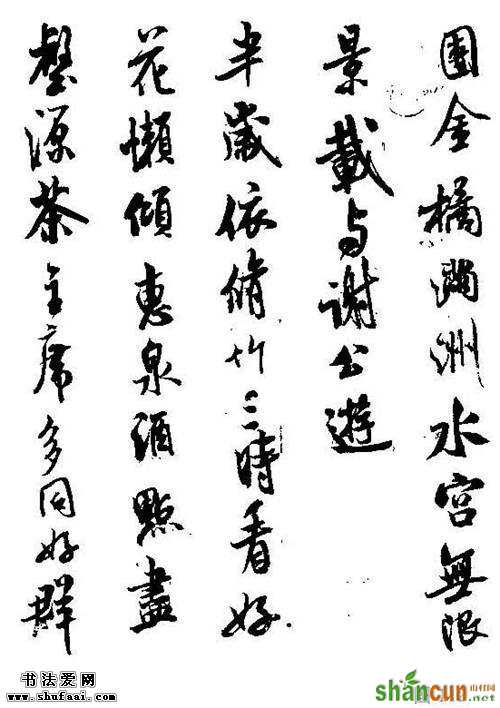 團金橘滿洲水宮無限
景載与謝公遊
半歲依脩竹三時看好
花懶傾惠泉酒點盡
壑源茶主席多同好群
书法爱网
www.shufaai.com
shancun